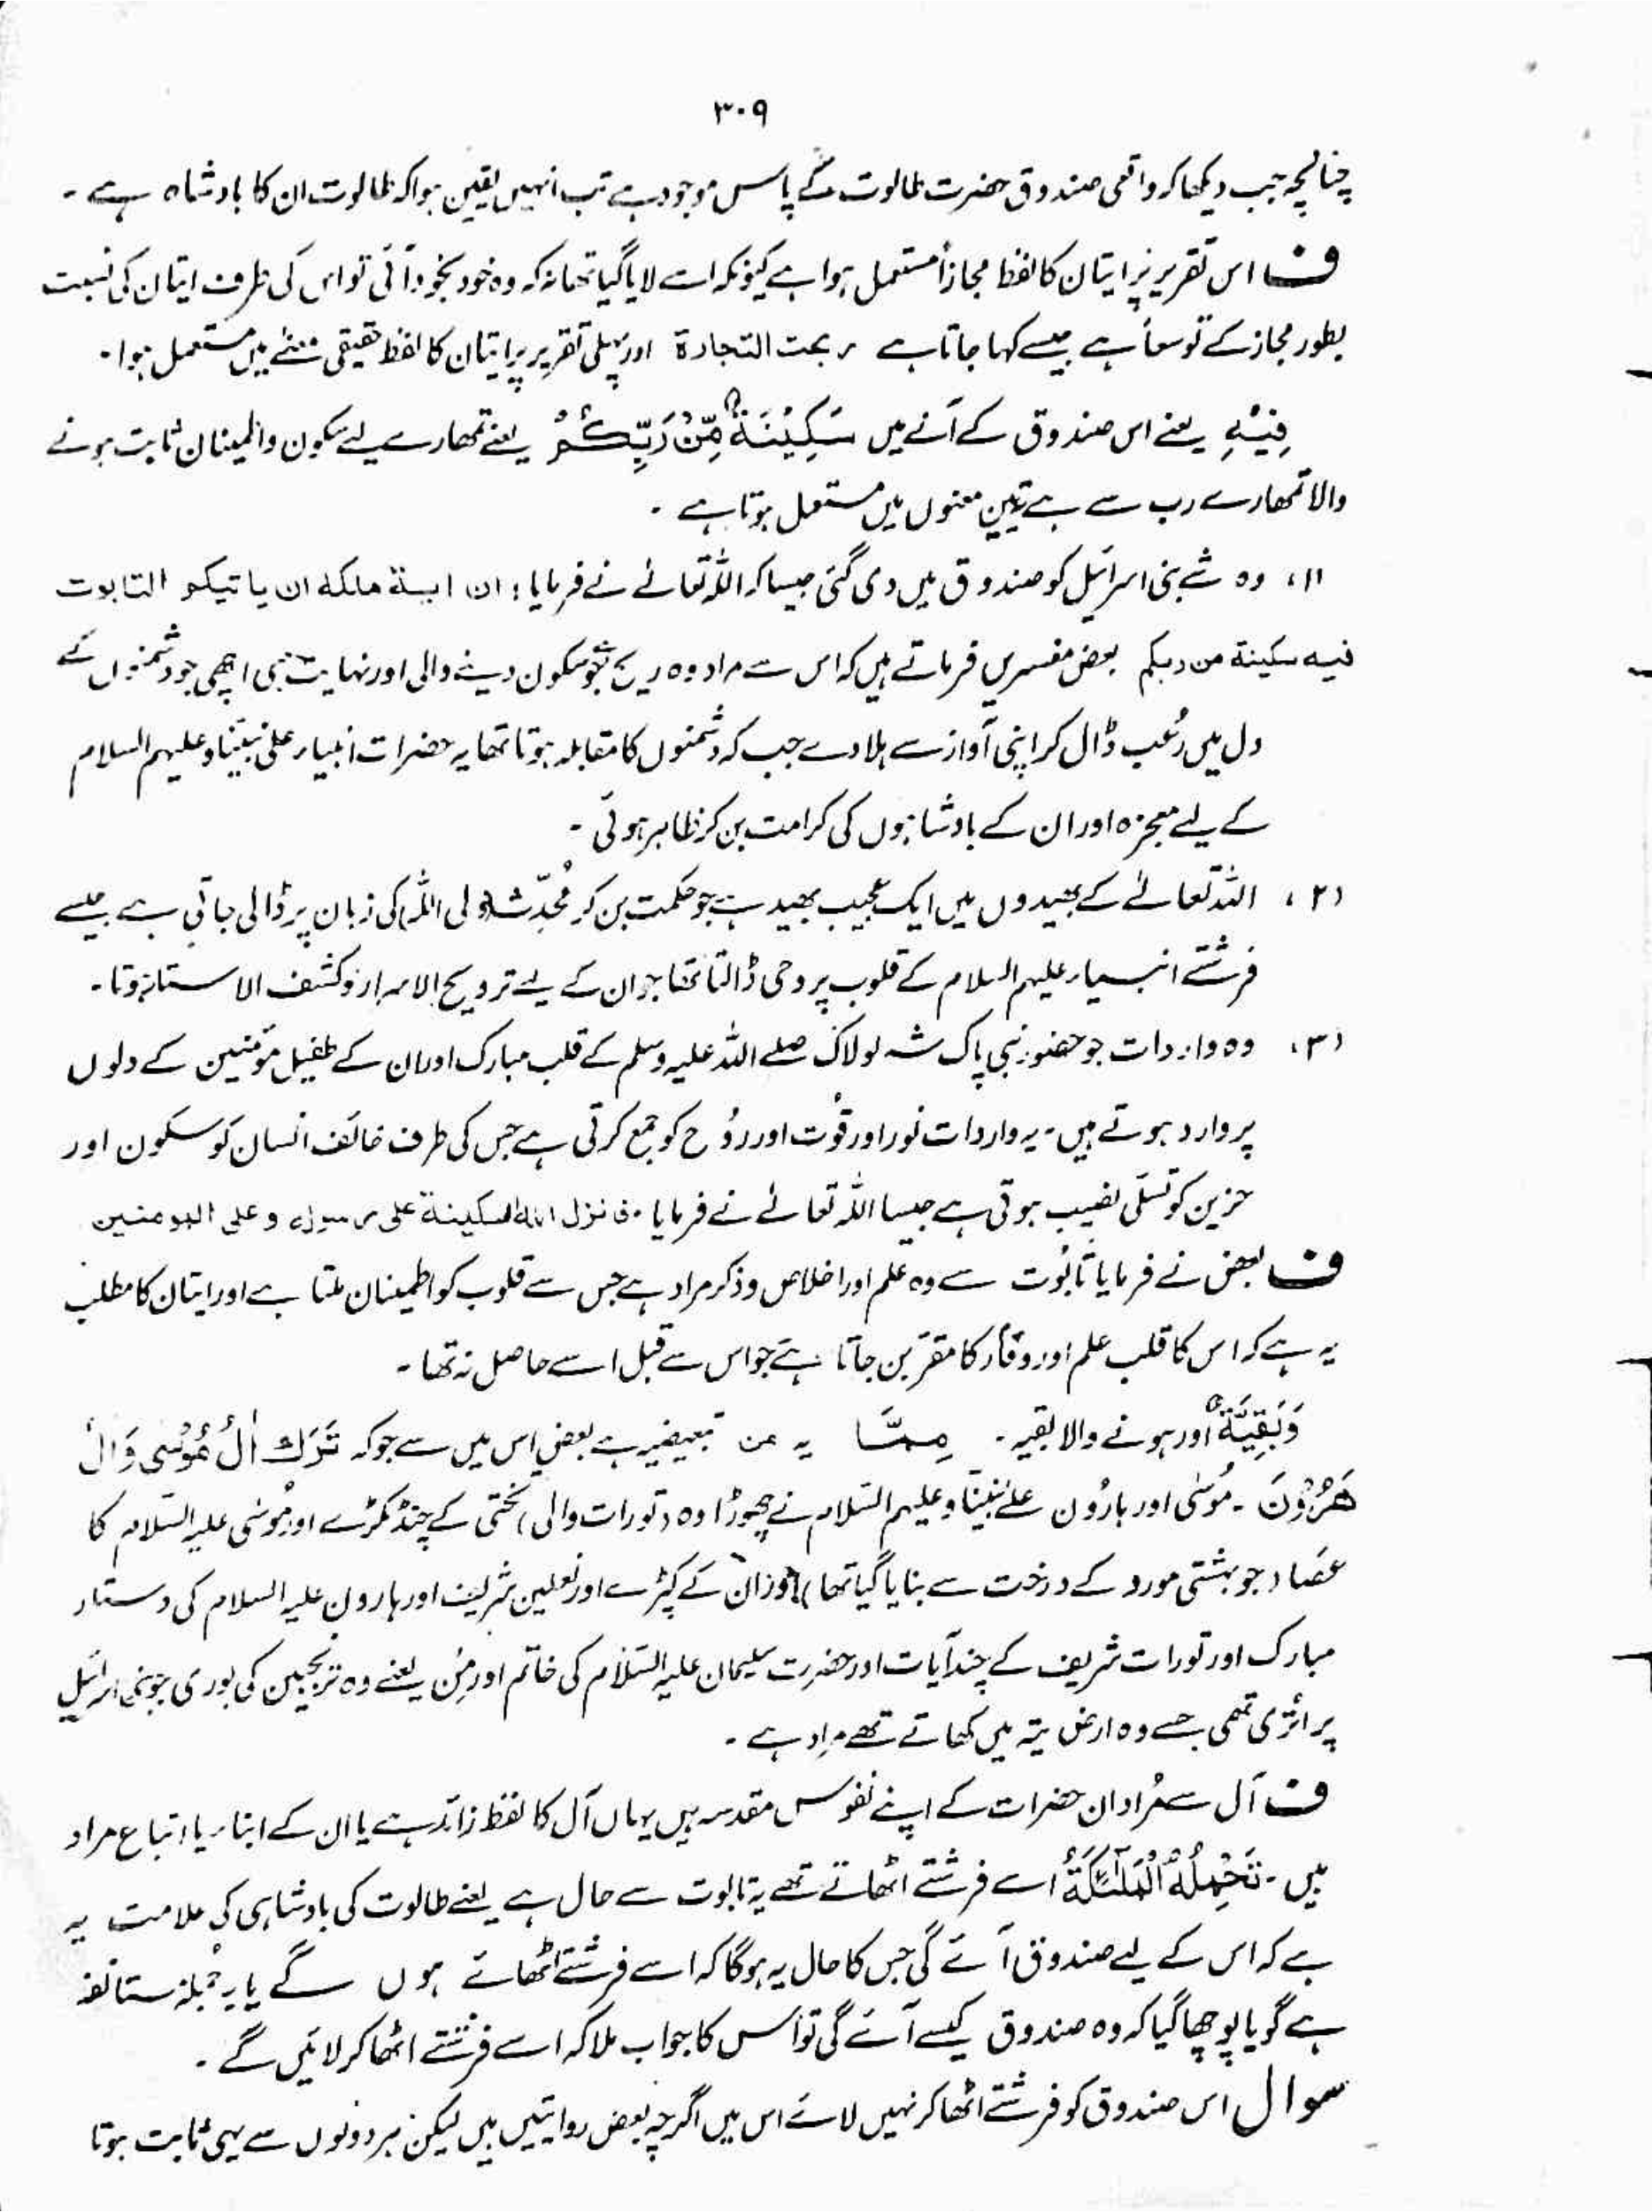 ۳۰۹
چنانچہ جب دیکھا کہ واقعی صندوق حضرت طالوت کے پاس موجود ہے تب انہیں یقین ہوا کہ طالوت ان کا بادشاہ ہے ۔
ف اس تقریر پر ایتان کا لفظ مجازاً مستعمل ہوا ہے کیونکہ اسے لایا گیا تھا نہ کہ وہ خود بخود آئی تو اس کی طرف ایتان کی نسبت
بطور مجاز کے توسعاً ہے جیسے کہا جاتا ہے ربحت التجارة اور پہلی تقریر پر ایتان کا لفظ حقیقی معنے میں مستعمل ہوا ۔
فِيْهِ یعنے اس صندوق کے آنے میں سَكِيْنَةٌ مِّنْ رَّبِّكُمْ یعنے تمھارے لیے سکون واطمینان ثابت ہونے
والا تمھارے رب سے ہے تین معنوں میں مستعمل ہوتا ہے ۔
(۱) وہ شے بنی اسرائیل کو صندوق میں دی گئی جیسا کہ اللہ تعالےٰ نے فرمایا : ان اية ملكه ان ياتيكم التابوت
فيه سكينة من ربكم بعض مفسریں فرماتے ہیں کہ اس سے مراد وہ ریح ہے جو سکون دینے والی اور نہایت ہی اچھی جو دشمنوں کے
دل میں رُعب ڈال کر اپنی آواز سے ہلا دے جب کہ دُشمنوں کا مقابلہ ہوتا تھا یہ حضرات انبیاء علیٰ نبینا وعلیہم السلام
کے لیے معجزہ اور ان کے بادشاہوں کی کرامت بن کر ظاہر ہوئی ۔
(۲) اللہ تعالےٰ کے بھیدوں میں ایک عجیب بھید ہے جو حکمت بن کر مُحدّث (ولی اللہ) کی زبان پر ڈالی جاتی ہے جیسے
فرشتے انبیاء علیہم السلام کے قلوب پر وحی ڈالتا تھا جو ان کے لیے ترویح الاسرار و کشف الاستار ہوتا ۔
(۳) وہ واردات جو حضور نبی پاک شہ لولاک صلے اللہ علیہ وسلم کے قلب مبارک اور ان کے طفیل مؤمنین کے دلوں
پر وارد ہوتے ہیں ۔ یہ واردات نور اور قوت اور رُوح کو جمع کرتی ہے جس کی طرف خائف انسان کو سکون اور
حزین کو تسلّی نصیب ہوتی ہے جیسا اللہ تعالےٰ نے فرمایا ۔ فانزل الله السكينة على رسوله وعلى المومنين
ف بعض نے فرمایا تابُوت سے وہ علم اور اخلاص وذکر مراد ہے جس سے قلوب کو اطمینان ملتا ہے اور ایتان کا مطلب
یہ ہے کہ اس کا قلب علم اور وقار کا مقر بن جاتا ہے جو اس سے قبل اسے حاصل نہ تھا ۔
وَبَقِيَّةٌ اور ہونے والا بقیہ ۔ مِمَّا یہ من تبعیضیہ ہے بعض اس میں سے جو کہ تَرَكَ اٰلُ مُوْسٰى وَاٰلُ
هٰرُوْنَ ۔ مُوسیٰ اور ہارُون علےٰ نبینا وعلیہم السّلام نے چھوڑا وہ (تورات والی) تختی کے چند ٹکڑے اور مُوسٰی علیہ السّلام کا
عصا (جو بہشتی مورد کے درخت سے بنایا گیا تھا) اور ان کے کپڑے اور نعلین شریف اور ہارون علیہ السلام کی دستار
مبارک اور تورات شریف کے چند آیات اور حضرت سلیمان علیہ السّلام کی خاتم اور من یعنے وہ ترنجبین کی بوری جو بنی اسرائیل
پر اتری تھی جسے وہ ارض تیہ میں کھاتے تھے مراد ہے ۔
ف آل سے مُراد ان حضرات کے اپنے نفوس مقدسہ ہیں یہاں آل کا لفظ زائد ہے یا ان کے ابناء یا اتباع مراد
ہیں ۔ تَحْمِلُهُ الْمَلٰٓئِكَةُ اسے فرشتے اٹھاتے تھے یہ تابوت سے حال ہے یعنے طالوت کی بادشاہی کی علامت یہ
ہے کہ اس کے لیے صندوق آئے گی جس کا حال یہ ہوگا کہ اسے فرشتے اٹھائے ہوں گے یا یہ جُملہ مستانفہ
ہے گویا پوچھا گیا کہ وہ صندوق کیسے آئے گی تو اس کا جواب ملا کہ اسے فرشتے اٹھا کر لائیں گے ۔
سوال اس صندوق کو فرشتے اٹھا کر نہیں لائے اس میں اگرچہ بعض روایتیں ہیں لیکن ہر دونوں سے یہی ثابت ہوتا